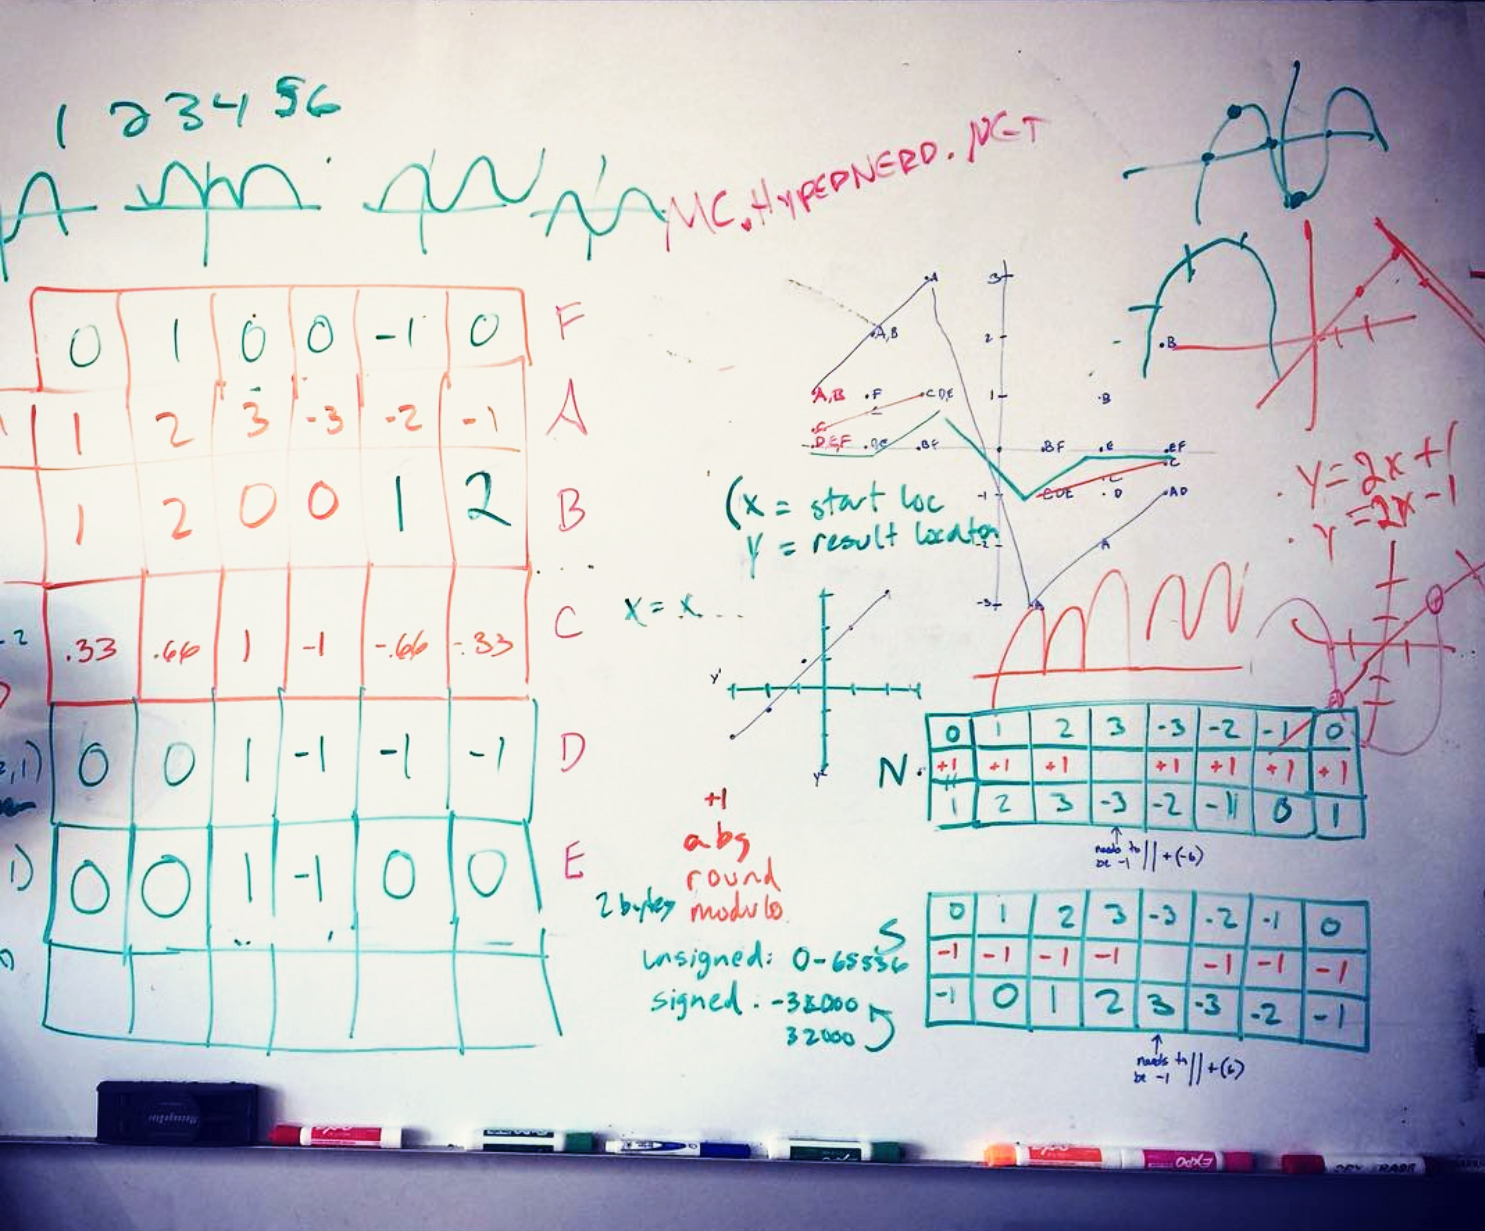 1 2 3 4 5 6
MC.HYPERNERD.NET
0 1 0 0 -1 0 F
1 2 3 -3 -2 -1 A
1 2 0 0 1 2 B
.33 .66 1 -1 -.66 -.33 C
0 0 1 -1 -1 -1 D
0 0 1 -1 0 0 E
3
A
2
A,B
A,B
F
C
CDE
1
B
C
D,E,F
DE
BF
BF
E
EF
C
-1
CDE
C
D
AD
-2
A
-3
A
B
(x = start loc
y = result location
x = x...
y'
y2
y=2x+1
y=2x-1
+1
abs
round
2 bytes modulo
unsigned: 0-65536
signed: -32000
32000
N
0 1 2 3 -3 -2 -1 0
+1 +1 +1 +1 +1 +1 +1
1 2 3 -3 -2 -1 0 1
needs to
be -1 || +(-6)
S
0 1 2 3 -3 -2 -1 0
-1 -1 -1 -1 -1 -1 -1
-1 0 1 2 3 -3 -2 -1
needs to
be -1 || +(6)
EXPO
DRY ERASE